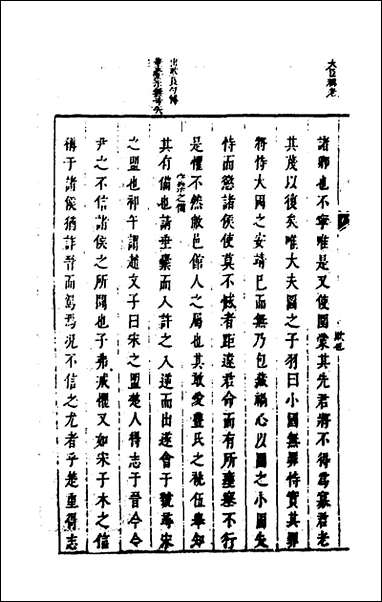 大臣稱老
諸卿也不寧唯是又使圍蒙其先君將不得爲寡君老
欺也
其蔑以復矣唯大夫圖之子羽曰小國無罪恃實其罪
將恃大國之安靖己而無乃包藏禍心以圖之小國失
恃而懲諸侯使莫不憾者距違君命而有所壅塞不行
是懼不然敝邑館人之屬也其敢愛豐氏之祧伍舉知
其有備也請垂櫜而入許之入逆而出遂會于虢尋宋
之盟也祁午謂趙文子曰宋之盟楚人得志于晉今令
尹之不信諸侯之所聞也子弗戒懼又如宋子木之信
稱于諸侯猶詐晉而駕焉況不信之尤者乎楚重得志